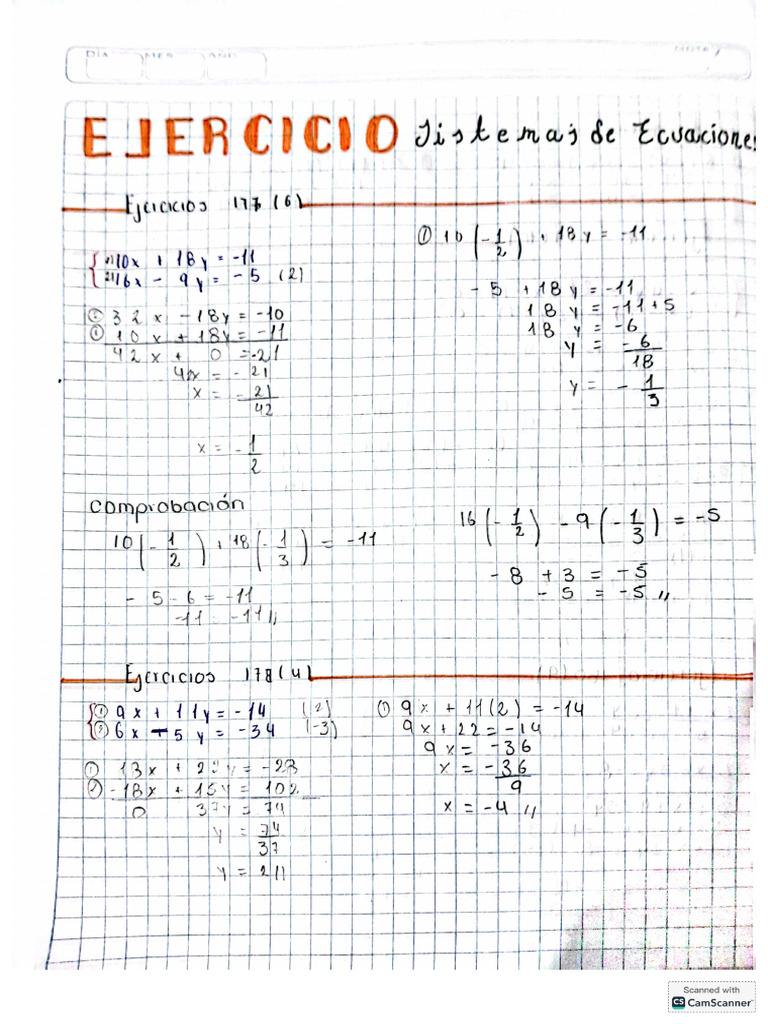 DÍA MES AÑO
EJERCICIO Sistemas de Ecuaciones
Ejercicios 177 (6)
① 10x + 18y = -11
② 16x - 9y = -5 (2)
② 32x - 18y = -10
① 10x + 18y = -11
42x + 0 = -21
42x = -21
x = -21/42
x = -1/2
① 10(-1/2) + 18y = -11
-5 + 18y = -11
18y = -11+5
18y = -6
y = -6/18
y = -1/3
Comprobación
10(-1/2) + 18(-1/3) = -11
-5-6 = -11
-11 -11 //
16(-1/2) - 9(-1/3) = -5
-8 + 3 = -5
-5 = -5 //
Ejercicios 178 (4)
① 9x + 11y = -14 (2)
② 6x - 5y = -34 (-3)
① 9x + 11(2) = -14
9x + 22 = -14
9x = -36
x = -36/9
x = -4 //
② -18x + 15y = 102
0 37y = 74
y = 74/37
y = 2 //
Scanned with
CS CamScanner